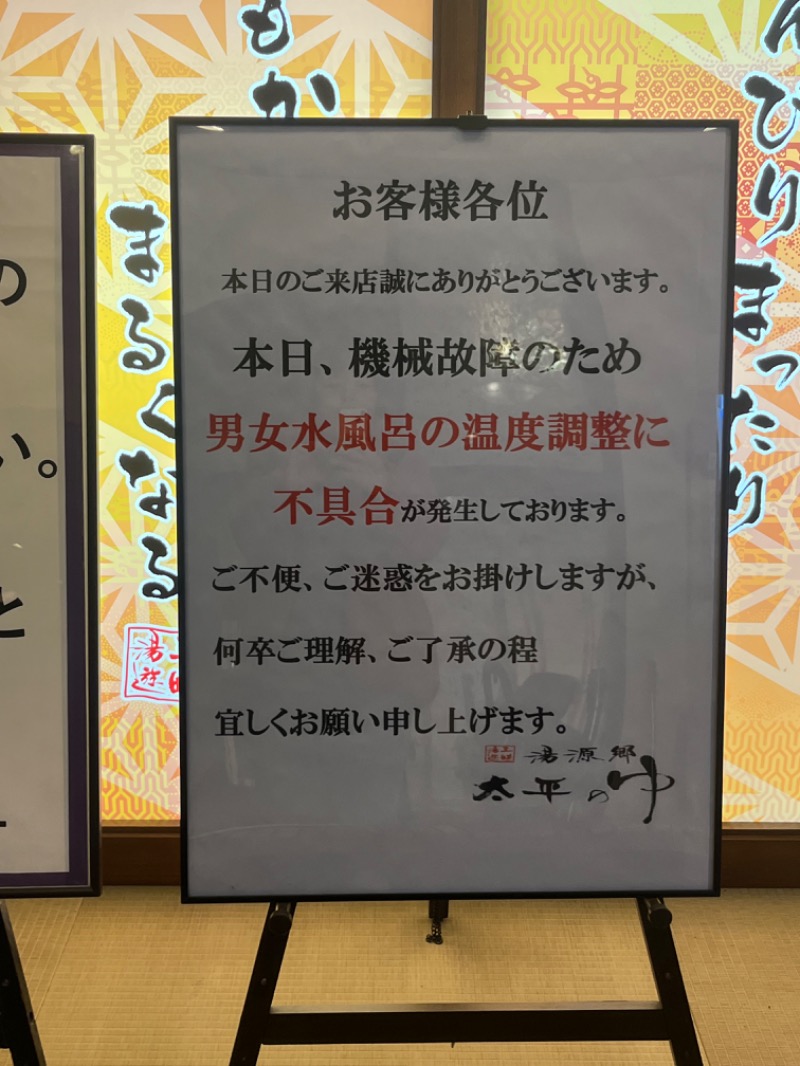 もか
まるくなる
んびりまったり
の
い。
と
お客様各位
本日のご来店誠にありがとうございます。
本日、機械故障のため
男女水風呂の温度調整に
不具合が発生しております。
ご不便、ご迷惑をお掛けしますが、
何卒ご理解、ご了承の程
宜しくお願い申し上げます。
湯源郷
太平のゆ